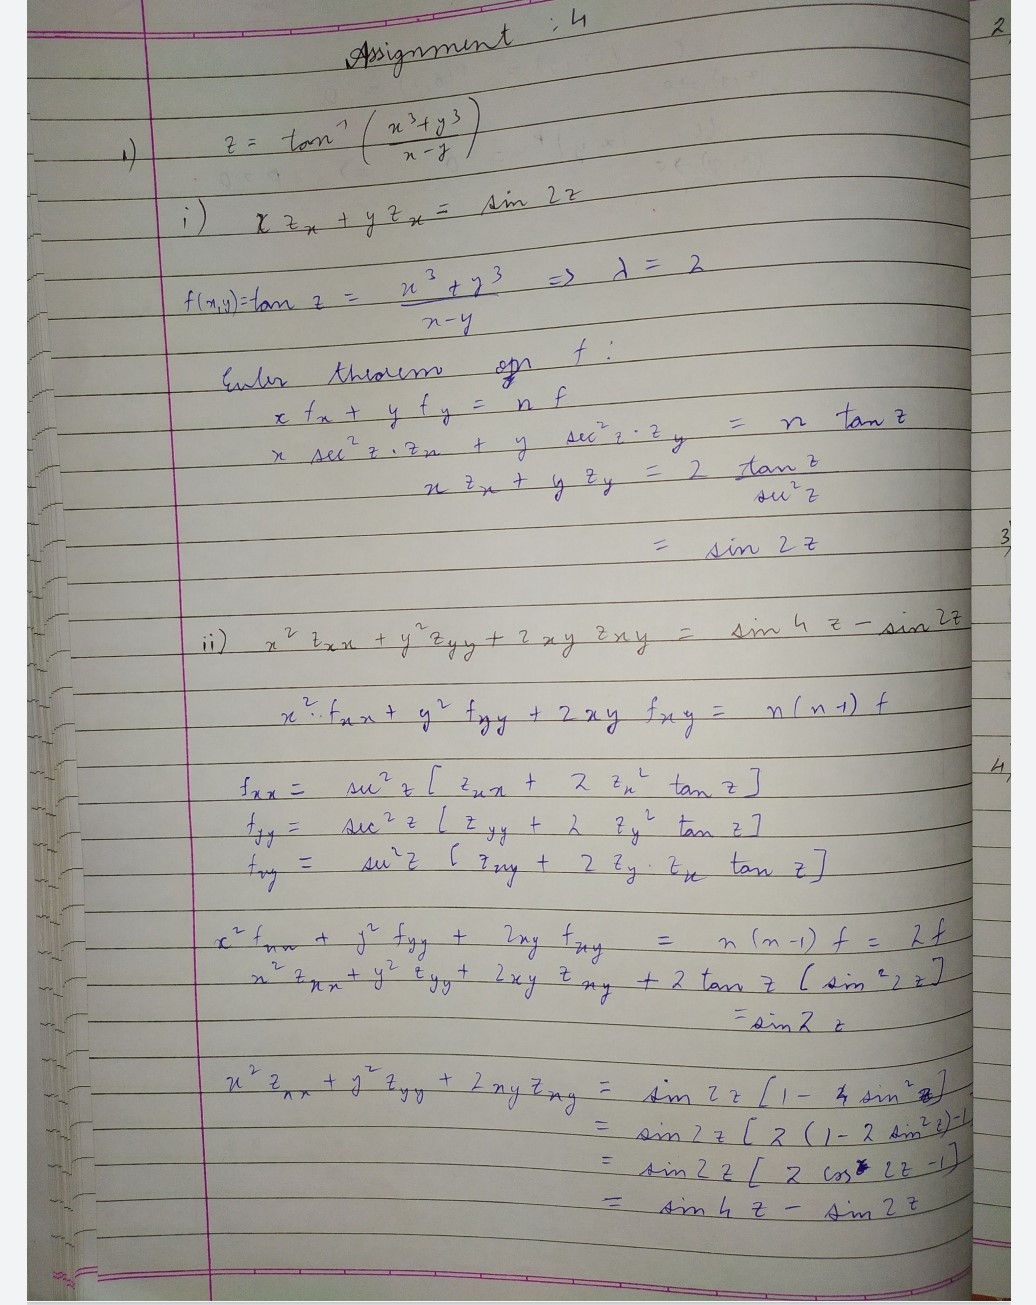 Assignment : 4
2
1) z = tan⁻¹ (x³+y³ / x-y)
i) x zₓ + y zₓ = sin 2z
f(x,y)=tan z = x³+y³ / x-y => λ = 2
Euler theorem on f :
x fₓ + y f_y = n f
x sec² z . zₓ + y sec² z . z_y = n tan z
x zₓ + y z_y = 2 tan z / sec² z
= sin 2z
3)
ii) x² zₓₓ + y² z_yy + 2xy z_xy = sin 4 z - sin 2z
x² . fₓₓ + y² f_yy + 2xy f_xy = n(n-1) f
4)
fₓₓ = sec² z [ zₓₓ + 2 zₓ² tan z ]
f_yy = sec² z [ z_yy + 2 z_y² tan z ]
f_xy = sec² z [ z_xy + 2 z_y . zₓ tan z ]
x² fₓₓ + y² f_yy + 2xy f_xy = n (n-1) f = 2f
x² zₓₓ + y² z_yy + 2xy z_xy + 2 tan z [ sin² 2z ]
= sin 2 z
x² zₓₓ + y² z_yy + 2xy z_xy = sin 2z [1 - 4 sin² z]
= sin 2z [ 2 (1 - 2 sin² z) -1
= sin 2z [ 2 cos 2z -1]
= sin 4 z - sin 2z